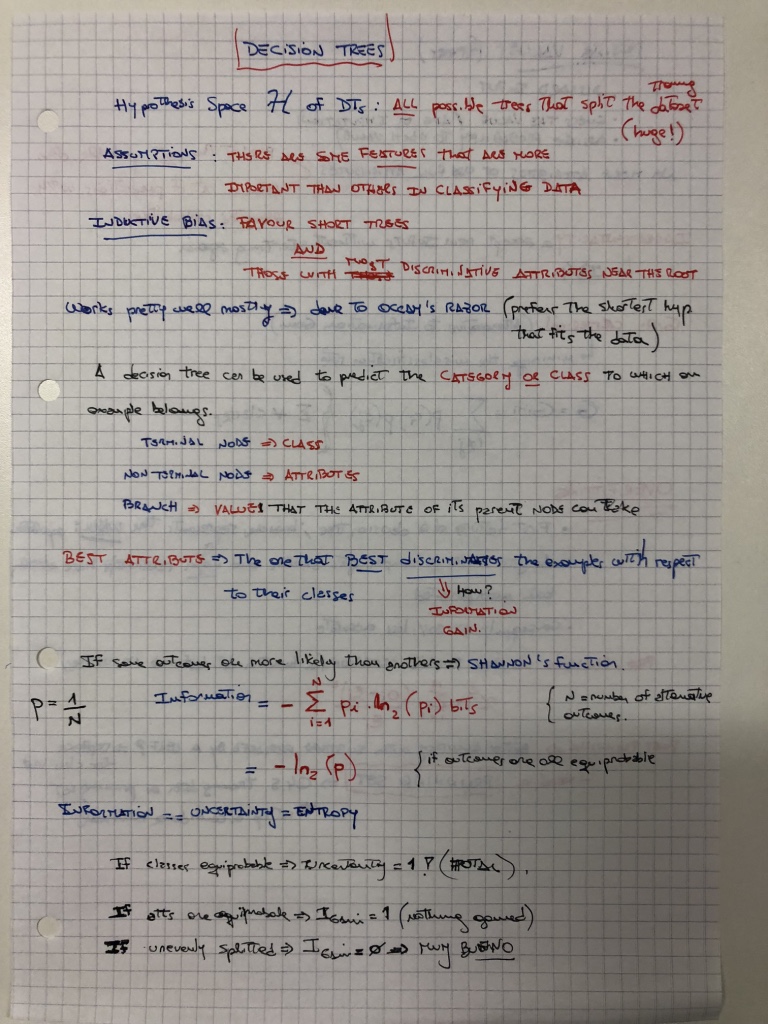 DECISION TREES
Hypothesis Space H of DTs : ALL possible trees that split the training dataset
(huge!)
ASSUMPTIONS : THERE ARE SOME FEATURES that ARE MORE
IMPORTANT THAN OTHERS IN CLASSIFYING DATA
INDUCTIVE BIAS: FAVOUR SHORT TREES
AND
THOSE WITH MOST DISCRIMINATIVE ATTRIBUTES NEAR THE ROOT
Works pretty well mostly => due TO OCCAM'S RAZOR (prefers the shortest hyp
that fits the data)
A decision tree can be used to predict the CATEGORY OR CLASS TO WHICH an
example belongs.
TERMINAL NODE => CLASS
NON TERMINAL NODE => ATTRIBUTES
BRANCH => VALUES THAT THE ATTRIBUTE OF its parent NODE can take
BEST ATTRIBUTE => The one that BEST discriminates the examples with respect
to their classes
⇓ How?
INFORMATION
GAIN.
If some outcomes are more likely than anothers => SHANNON's function.
p = 1/N
Information = - Σ_{i=1}^{N} pi · ln2 (pi) bits
{ N = number of alternative
outcomes.
= - ln2 (p)
{ if outcomes are all equiprobable
INFORMATION == UNCERTAINTY = ENTROPY
If classes equiprobable => Uncertainty = 1 ? (TOTAL).
If atts are equiprobable => IGain = 1 (nothing gained)
If unevenly splitted => IGain = Ø => MUY BUENO